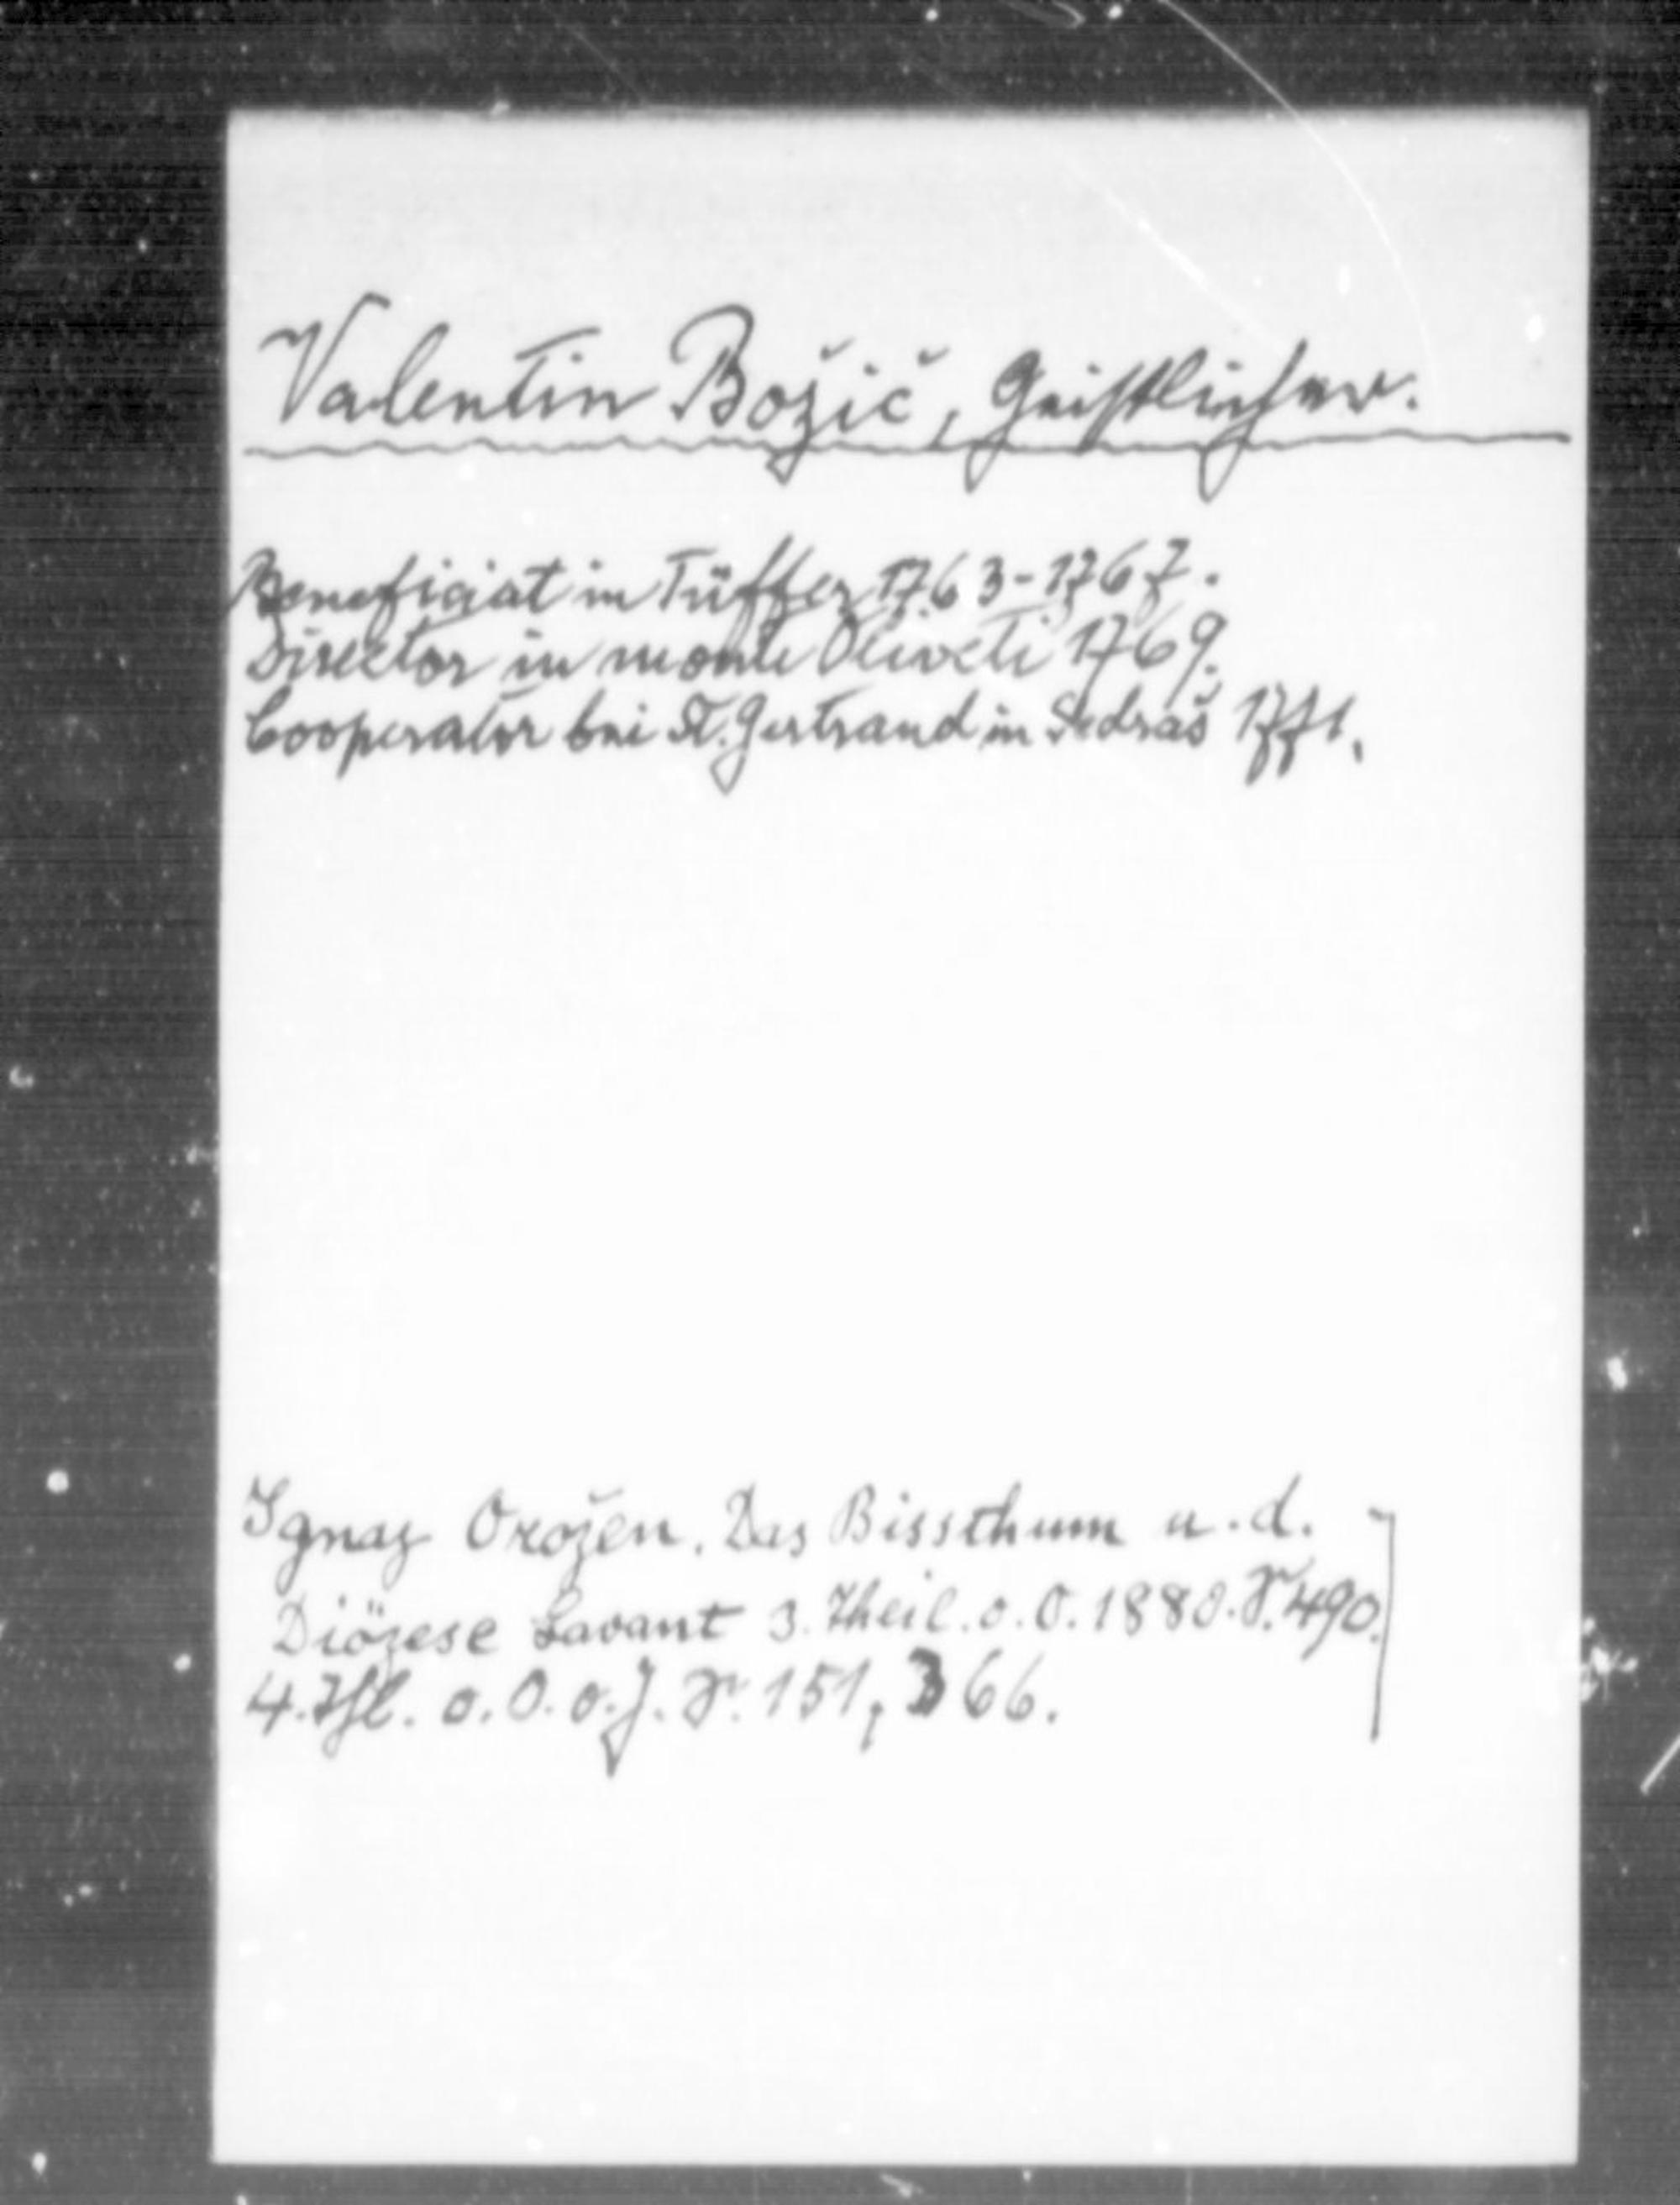 Valentin Božič, Geistlicher.
Beneficiat in Tüffer 1763-1767.
Director in monte Oliveti 1769.
Cooperator bei St. Gertraud in Sedraš 1771.
Ignaz Orožen. Das Bissthum u. d.
Diözese Lavant 3. Theil. o. O. 1880. S. 490.
4. Thl. o. O. o. J. S. 151, 366.